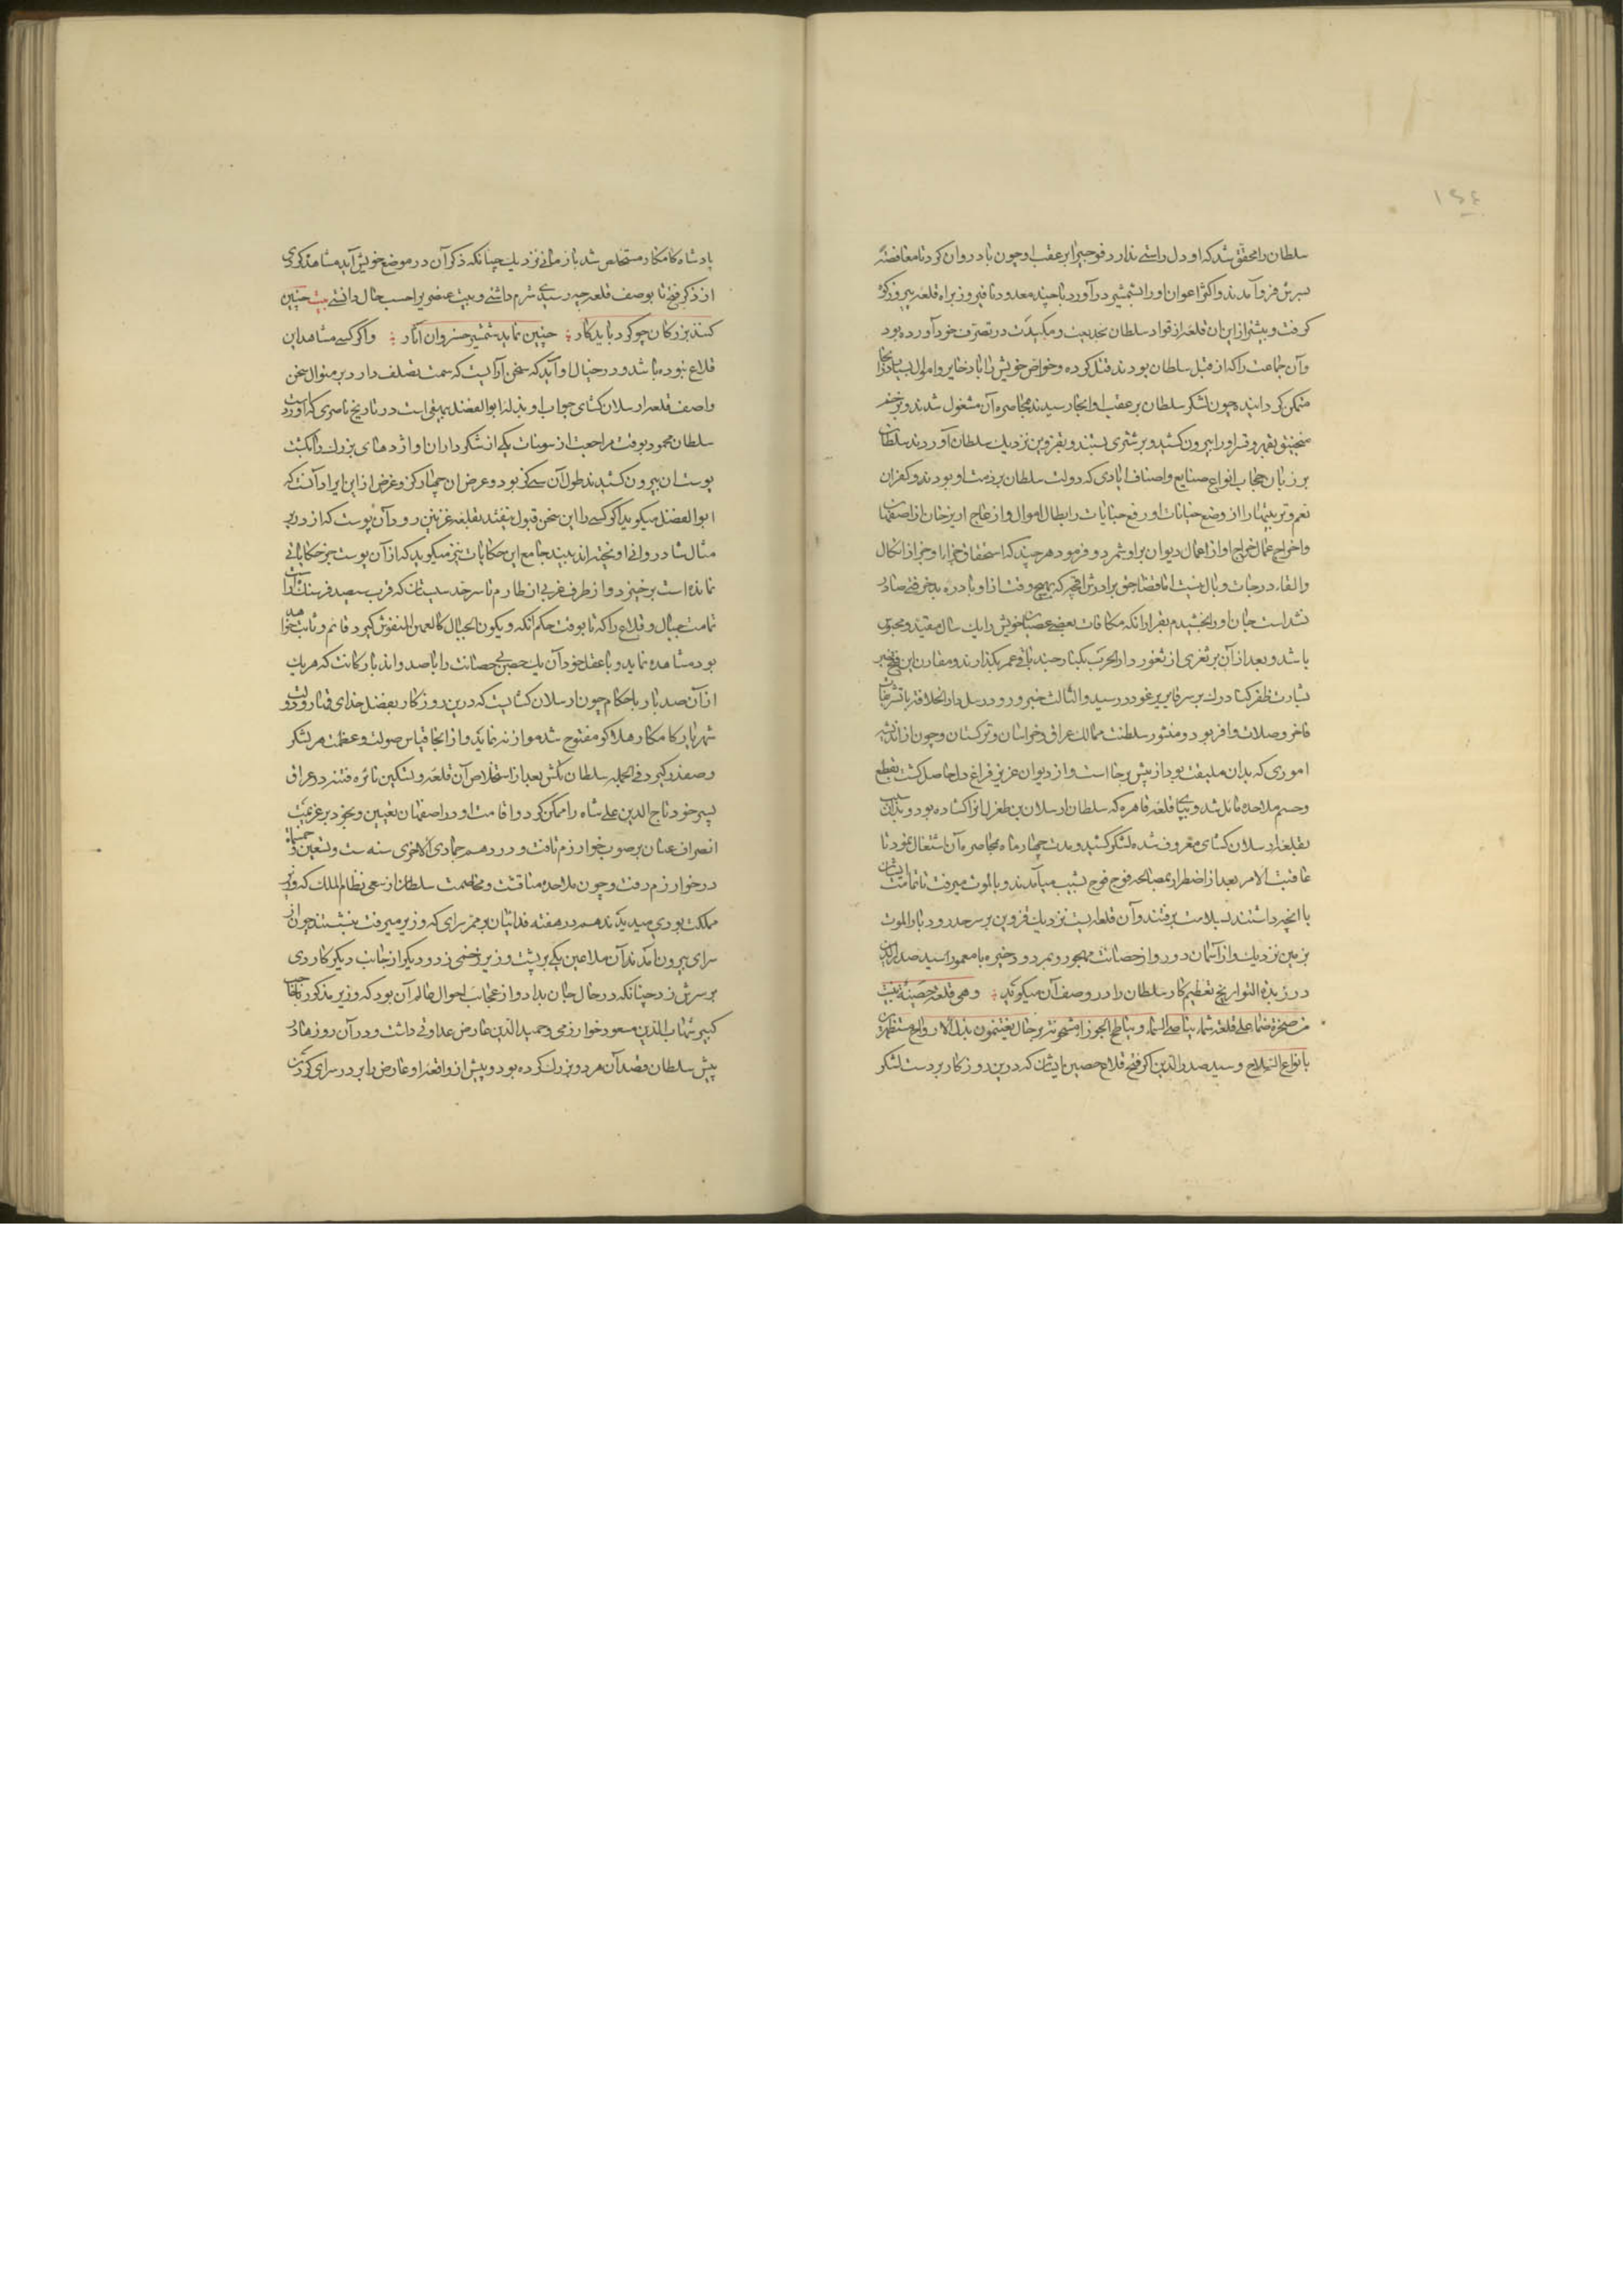 ١٤٤
سلطان را محقق شد که او دل راستی ندارد فوجی را بر عقب او چون باد روان کرد تا مغافصةً
بسرش فرو آمدند و اکثر اعوان او را بشمشیر در آورد با چند معدود تا فیروز براه قلعه پیروزکوه
گرفت و بیشتر از این آن قلعه از قواد سلطان بخدیعت و مکیدت در تصرف خود آورده بود
و آن جماعت را که از قبل سلطان بودند قتل کرده و خواص خویش را با ذخایر و اموال بسیار در آنجا
متمکن گردانیده چون لشکر سلطان بر عقب او آنجا رسیدند بمحاصره آن مشغول شدند و بزخم
منجنیق بقهر و قسر او را بیرون کشیدند و بر شتری بستند و بقزوین نزدیک سلطان آوردند سلطان
بر زبان حجاب انواع صنایع و اصناف ایادی که دولت سلطان بر ذمت او بودند و کفران
نعم و تربیتها را از وضع جنایات او و رفع جبایات و ابطال اموال و ازعاج اربزخان از اصفهان
و اخراج عمال خراج او از اعمال دیوان برو شمرد و فرمود هر چند که استحقاق جزا و خزی از انکال
نشدست جان او را بخشیدم بقرار آنکه مکافات بعضی عصیان خویش را یک سال مقید و محبوس
باشد و بعد از آن بر ثغری از ثغور دار الحرب بکنار جند باقی عمر بگذارند و مقارن این فتح خبر
بشارت ظفر کنار درک بر سر قایر بوغو در رسید و الثالث خبر ورود رسل دار الخلافه با تشریفات
فاخر و صلات وافر بود و منشور سلطنت ممالک عراق و خراسان و ترکستان و چون از اندیشه
اموری که بدان ملتفت بود از پیش برخاست و از دیوان عزیز فراغ دل حاصل گشت بقطع
و حسم ملاحده مایل شد و بپای قلعه قاهره که سلطان ارسلان بن طغرل آنرا گشاده بود و بدان سبب
بقلعه ارسلان گشای معروف شده لشکر کشید و مدت چهار ماه بمحاصره آن اشتغال نمود تا
عاقبت الامر بعد از اضطرار بمصالحه فوج فوج بشیب میآمدند و بالموت میرفت تا تمامت ایشان
با آنچه داشتند بسلامت برفتند و آن قلعه ایست نزدیک قزوین بر سر حد رودبار الموت
بزمین نزدیک و از آسمان دور و از حصانت مهجور و بمرد و ذخیره نامعمور سید صدر الدین
در زبدة التواریخ تعظیم کار سلطان را در وصف آن میگوید ؛ وهی قلعة حصینة بنیت
من صخرة صماء علی قلعة شماء یناصی السماء ویناطح الجوزاء مشحونة برجال یغتنمون بذل الارواح مستظهرین
بانواع السلاح و سید صدر الدین اگر فتح قلاع حصین ایشان که درین روزگار بر دست لشکر
پادشاه کامکار مستخلص شد باز مانی نزدیک چنانکه ذکر آن در موضع خویش آید مشاهد کردی
از ذکر فتح تا بوصف قلعه چه رسیدی شرم داشتی و بیت عنصری را حسب حال دانستی بیت چنین
کنند بزرگان چو کرد باید کار ؛ چنین نماید شمشیر خسروان آثار ؛ واگر کسی مشاهد این
قلاع نبوده باشد و در خیال او آید که سخن آرائیست که سمت تصلف دارد بر منوال سخن
واصف قلعه ارسلان گشای جواب او بذله ابو الفضل بیهقی است در تاریخ ناصری که آورده است
سلطان محمود بوقت مراجعت از سومنات یکی از شکرداران او اژدهای بزرگ را بکشت
پوست آن بیرون کشیدند طول آن سی گز بود و عرض آن چهار گز و غرض از این ایراد آنست که
ابو الفضل میگوید اگر کسی را این سخن قبول نیفتد بقلعه غزنین رود و آن پوست که از در بر
مثال شادروانی آویخته اند ببیند جامع این حکایات نیز میگوید که از آن پوست جز حکایاتی
نمانده است برخیزد و از طرف غربی از طارم تا سر حد سیستان که قرب سیصد فرسنگ است
تمامت جبال و قلاع را که تا بوقت حکم آنکه و یکون الجبال کالعهن المنفوش گیرد قائم و ثابت خواهد
بود مشاهده نماید و با عقل خود آن یک حصن بی حصانت را با صد و اند پاره کانت که هر یک
از آن صد بار باحکام چون ارسلان گشایست که درین روزگار بفضل خدای قهار و دولت
شهریار کامکار هلاکو مفتوح شد موازنه فرماید و از آنجا قیاس صولت و عظمت هر لشکر
و صفدر گیرد فی الجمله سلطان تکش بعد از استخلاص آن قلعه و تسکین نائره فتنه در عراق
پسر خود تاج الدین علی شاه را ممکن کرد و اقامت او در اصفهان تعیین و بخود بر عزیمت
انصراف عنان بر صوب خوارزم تافت و در دهم جمادی الاخری سنه ست و تسعین و خمسمائه
در خوارزم رفت و چون ملاحده مناقشت و مخاصمت سلطان از سعی نظام الملک که وزیر
مملکت بود می دیدند هم در هفته فدائیان بر ممر سرای که وزیر میرفت بنشستند چون از
سرای بیرون آمد آن ملاعین یکی بر پشت وزیر زخمی زد و دیگر از جانب دیگر کاردی
بر سرش زد چنانکه در حال جان بداد و از عجایب احوال عالم آن بود که وزیر مذکور را با حاجب
کبیر شهاب الدین مسعود خوارزمی و حمید الدین عارض عداوتی داشت و در آن روزها در
پیش سلطان قصد آن هر دو بزرگ کرده بود و پیش از واقعه او عارض را بر در سرای گردن